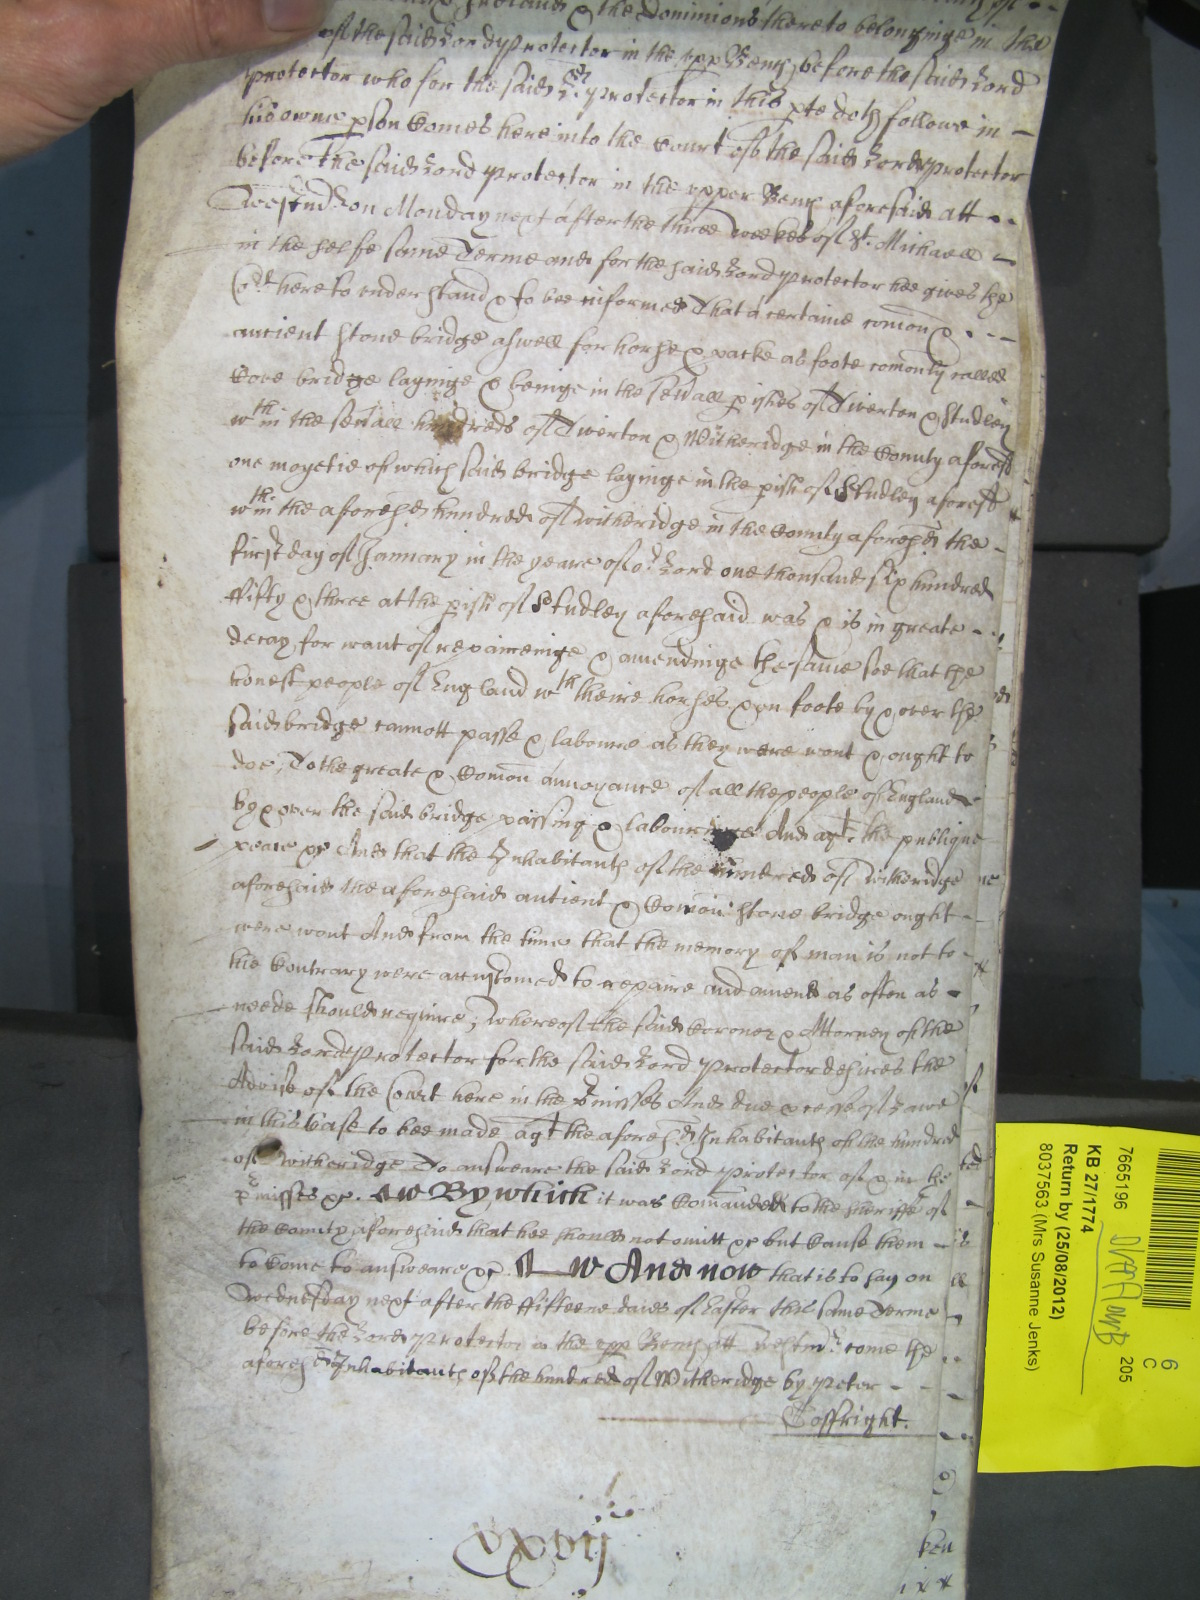 & the Dominions thereto belonginge in the
of the said Lord Protector in the upp Bench before the said Lord
Protector who for the said Ld Protector in this pte doth followe in
his owne pson Comes here into the Court of the said Lord Protector
before the said Lord Protector in the upper Bench aforesaid att
Westmr on Monday next after the three weekes of St. Michaell
in the selfe same Terme and for the said Lord Protector hee gives the
Cort here to understand & to bee informed That a certaine comon &
ancient stone bridge aswell for horse & packe as foote comonly called
Cove bridge layinge & beinge in the sevall pishes of Tiverton & Studley
wthin the sevall hundreds of Tiverton & Witheridge in the County aforesd
one moyetie of which said bridge layinge in the pish of Studley aforesd
wthin the aforesd hundred of witheridge in the County aforesd the
first day of January in the yeare of or Lord one thousand six hundred
ffifty & three at the pish of Studley aforesaid was & is in greate
decay for want of repaireinge & amendinge the same soe that the
honest people of England wth theire horses & on foote by & over the
said bridge cannott passe & labour as they were wont & ought to
doe, To the greate & Comon annoyance of all the people of England
by & over the said bridge passing & labouringe And agt the publique
peace &c And that the Inhabitants of the hundred of witheridge
aforesaid the aforesaid antient & Comon stone bridge ought
were wont And from the time that the memory of man is not to
the Contrary were accustomed to repaire and amend as often as
neede should require; Whereof the said Coroner & Attorney of the
said Lord Protector for the said Lord Protector desires the
Advise of the Court here in the pmisses And due processe of Lawe
in this Case to bee made agt the aforesd Inhabitants of the hundred
of Witheridge To answeare the said Lord Protector of & in the
pmisses &c. By which it was Comanded to the sheriffe of
the County aforesaid that hee should not omitt &c but Cause them
to Come to answeare &c. And now that is to say on
Wednesday next after the ffifteene daies of Easter this same Terme
before the Lord Protector in the upp Bench att westmr come the
aforesd Inhabitants of the hundred of Witheridge by Peter
xxvij
7665196
KB 27/1774
Return by (25/08/2012)
8037563 (Mrs Susanne Jenks)
205
6
C